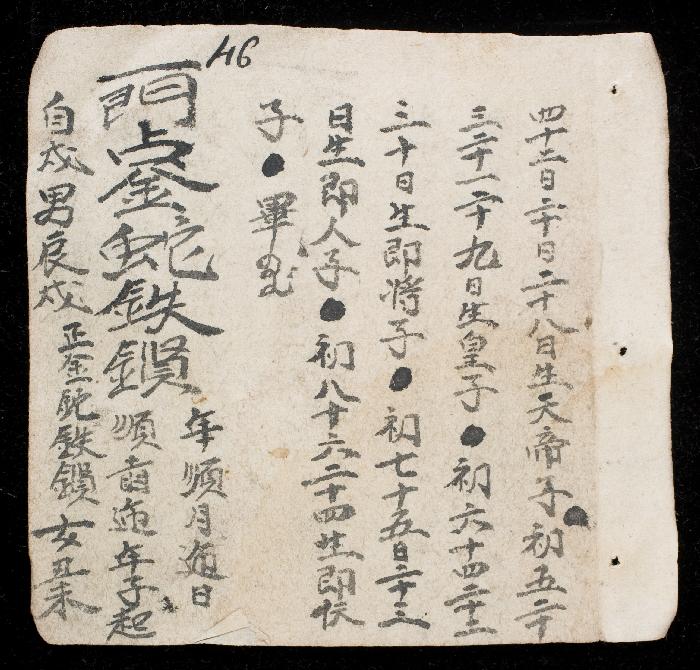 46
四十二日二十日二十八日生天帝子初五二十
三二十一二十九日生皇子●初六十四二十二
三十日生即將子●初七十五日二十三
日生即人子●初八十六二十四生即伏
子●畢
年順月逆日
一門金蛇鉄鎖
順首逆年子起
自戍男辰戍正金蛇鉄鎖女丑未